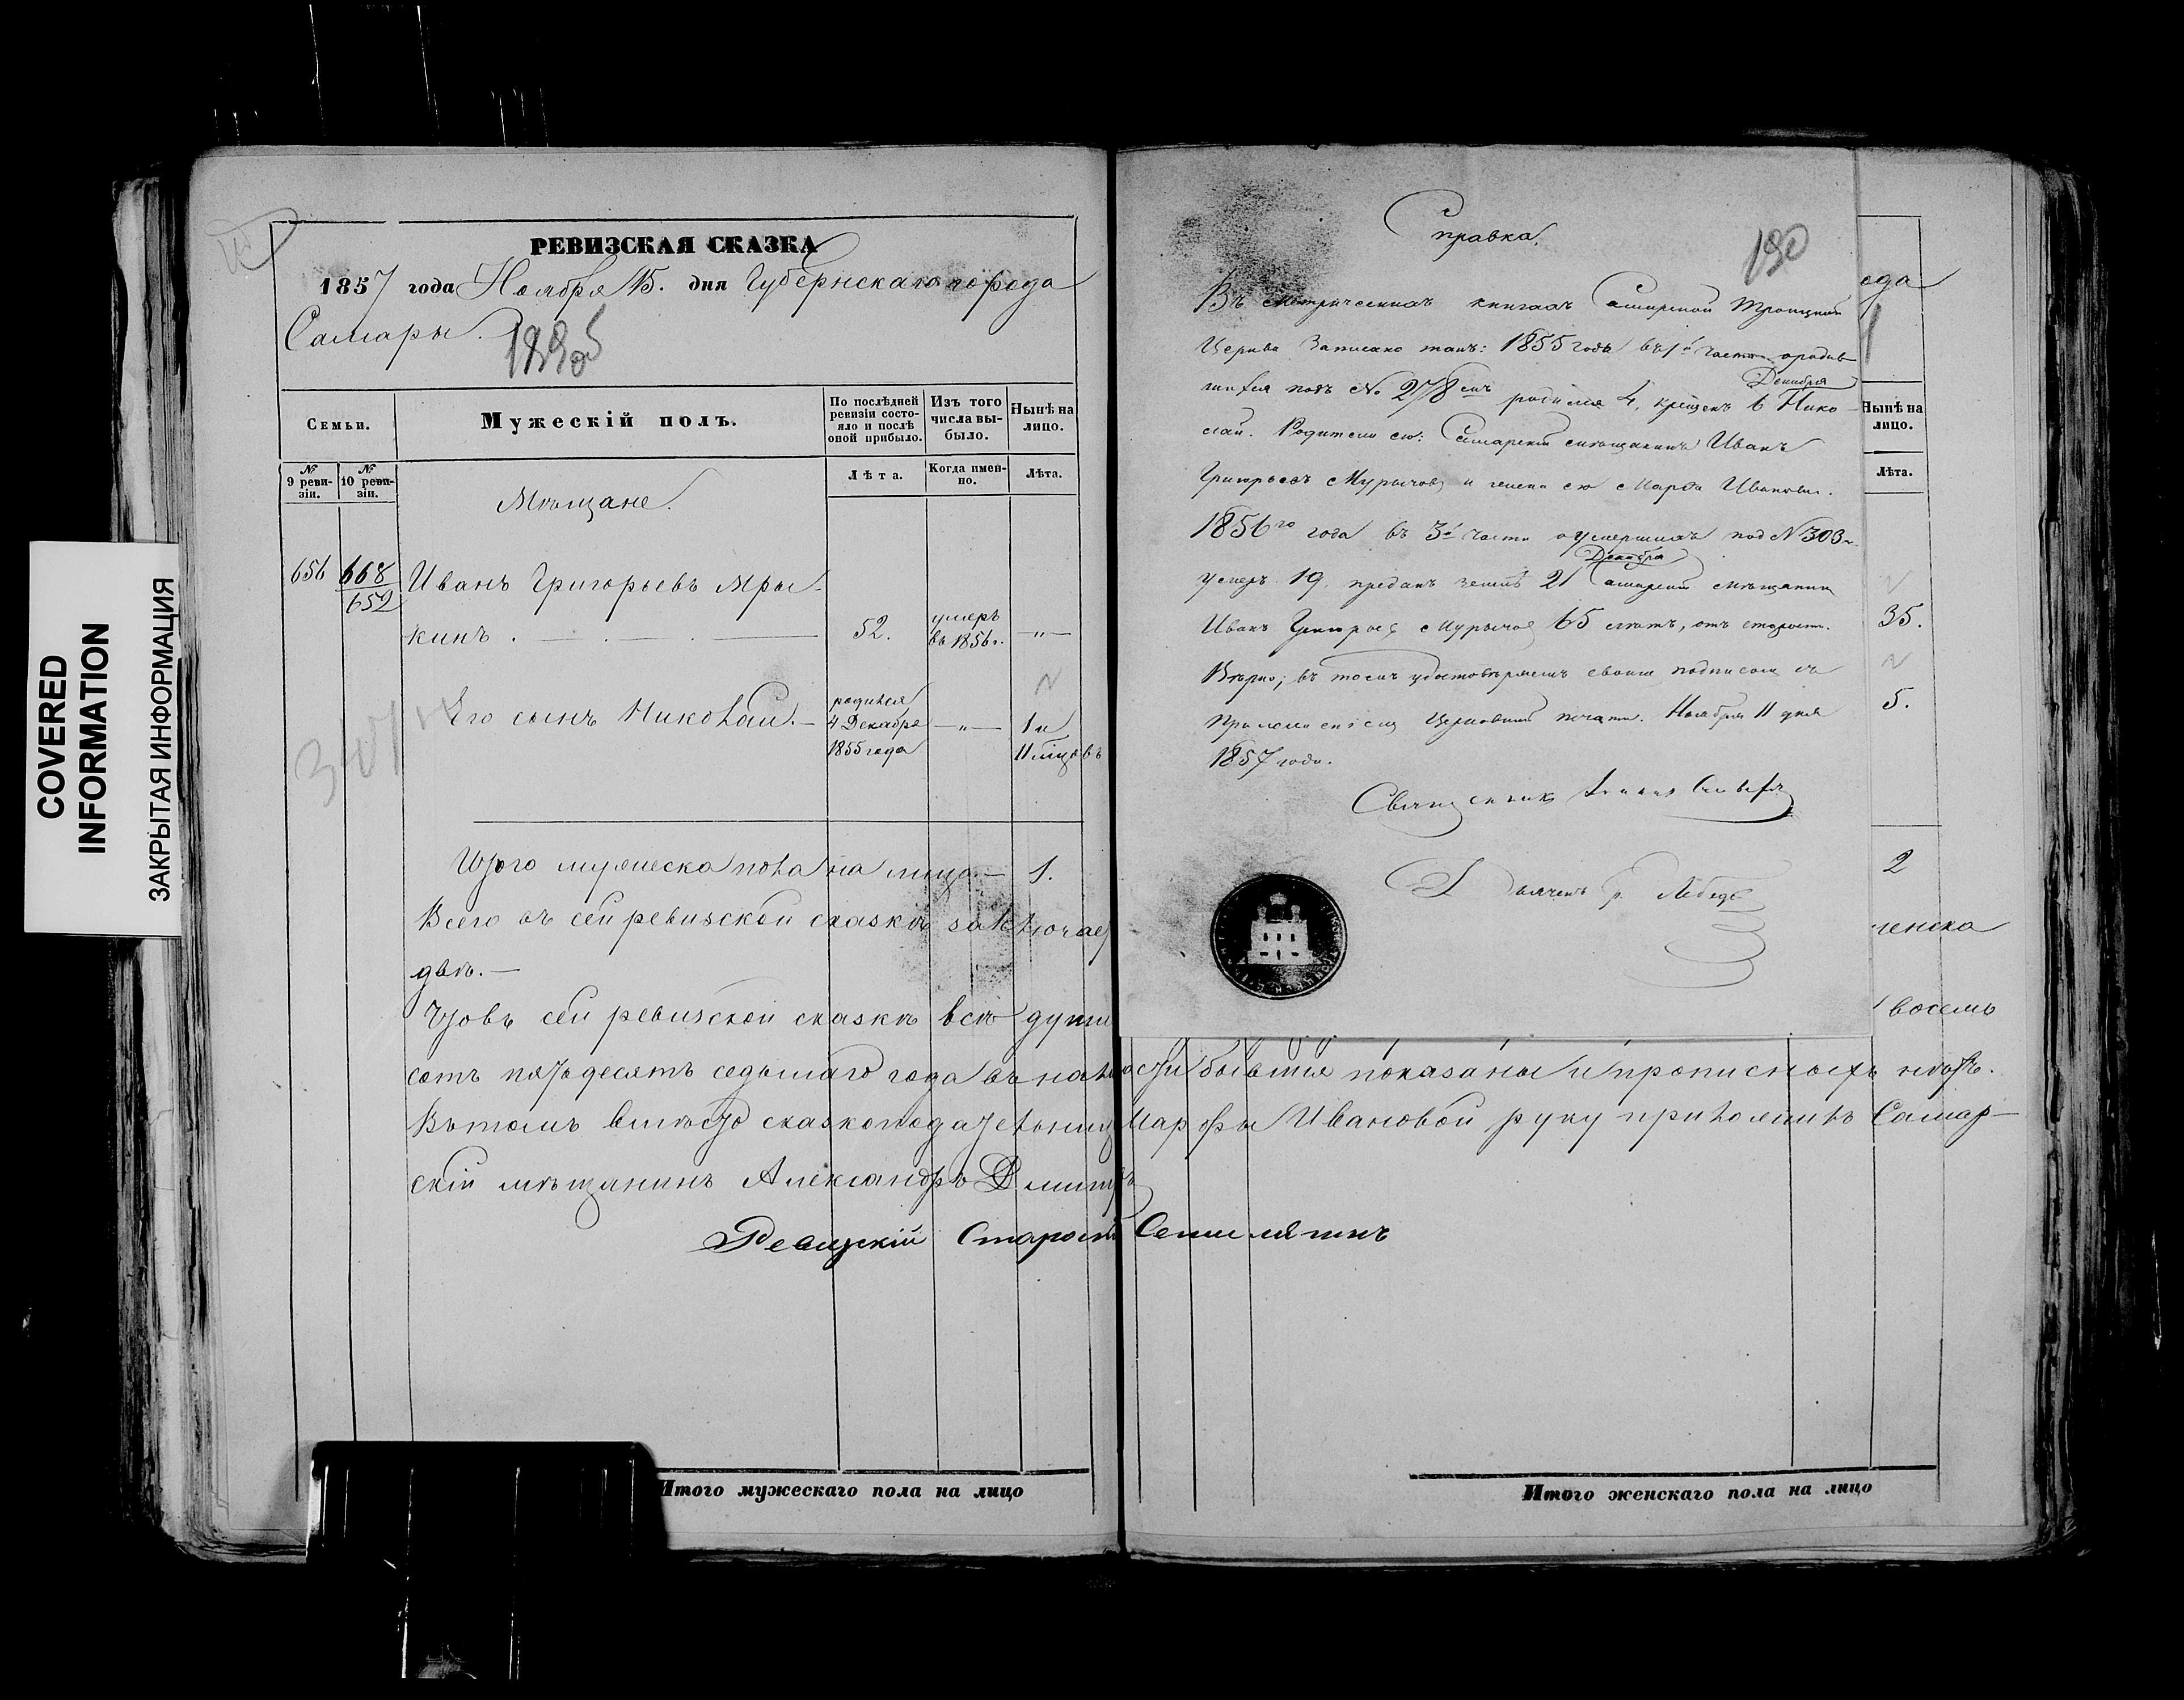 COVERED
INFORMATION
ЗАКРЫТАЯ ИНФОРМАЦИЯ
РЕВИЗСКАЯ СКАЗКА
1857 года Ноября 15. дня Губернскаго города
Самары.
Семьи.
Мужескій полъ.
По послѣдней ревизіи состо-
яло и послѣ
оной прибыло.
Изъ того
числа вы-
было.
Нынѣ на
лицо.
№ 9 реви-
зіи.
№ 10 реви-
зіи.
Лѣта.
Когда имен-
но.
Лѣта.
Мѣщане.
656
668
652
Иванъ Григорьевъ Мры-
кинъ
52.
умеръ
въ 1856 г.
Его сынъ Николай.
родился
4 Декабря
1855 года
1 и
11 мѣцовъ
307
Итого мужеска пола на лицо — 1.
Всего въ сей ревизской сказкѣ заключае
двѣ.—
Что въ сей ревизской сказкѣ всѣ души
сотъ пятьдесятъ седьмаго года въ нали
Въ томъ вмѣсто сказкоподательниц
скій мѣщанинъ Александръ
Ревизскій Старост
Итого мужескаго пола на лицо
Справка.
190
Въ метрическихъ книгахъ Самарской Троицкой
Церкви Записано такъ: 1855 года въ 1й части о родив
шихся подъ № 278 родился 4, крещенъ 6 Декабря Нико-
лай. Родители его: Самарскій мѣщанинъ Иванъ
Григорьевъ и жена его Марфа Иванова.
1856го года въ 3й части о умершихъ под № 303
умеръ 19, преданъ землѣ 21 Декабря Самарскій мѣщанинъ
Иванъ Григорьев 65 лѣтъ, отъ старости.
Вѣрно; въ томъ удостовѣряемъ своимъ подписом съ
приложеніемъ Церковной печати. Ноября 11 дня
1857 года.
Священник
Лебедев
ода
Нынѣ на
лицо.
Лѣта.
35.
5.
2
женска
восемь
бывшія показаны и прописныхъ нѣтъ.
Марфы Ивановой руку приложилъ Самар-
Итого женскаго пола на лицо